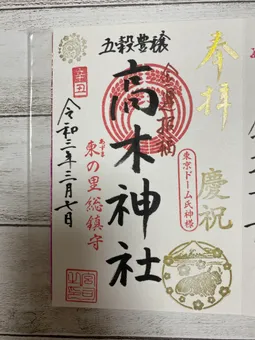 奉拝
慶祝
五穀豊穣
金運招福
高木神社
東京ドーム氏神様
辛丑
あずま
東の里総鎮守
令和三年三月七日